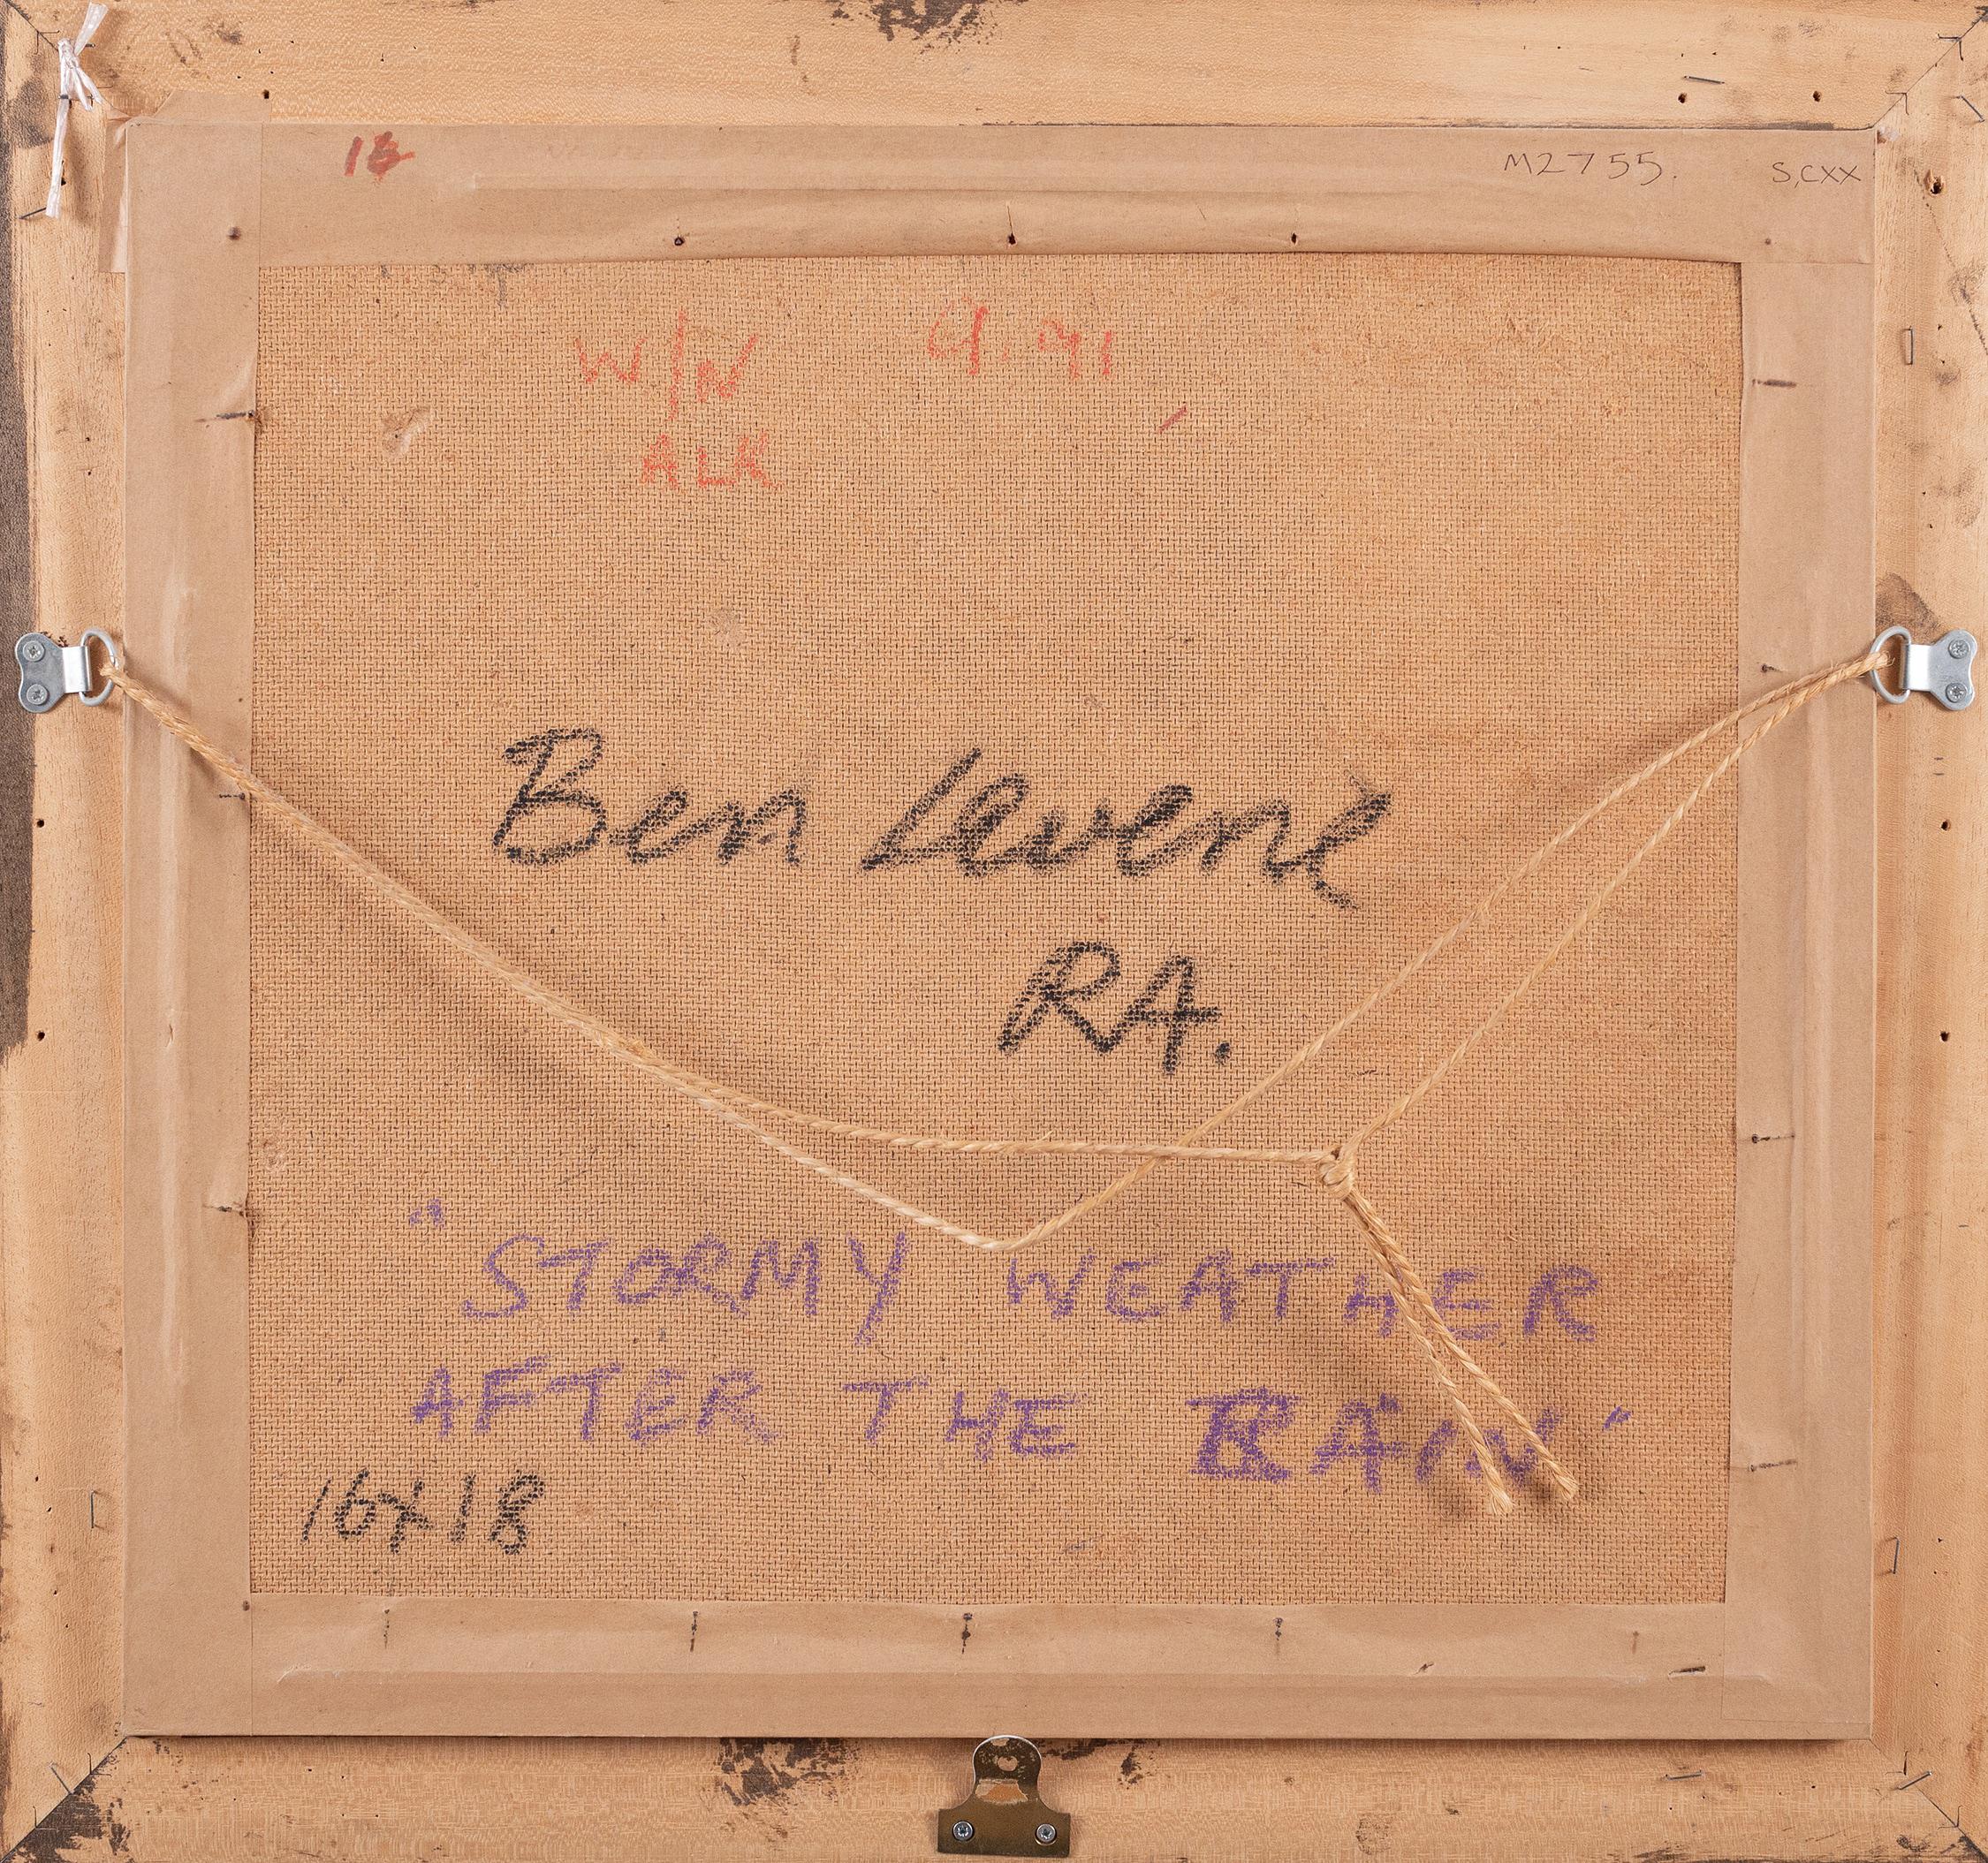 18
M2755.
S,CXX
W/N
ALK
Ben Levene
RA.
"STORMY WEATHER
AFTER THE RAIN"
16x18